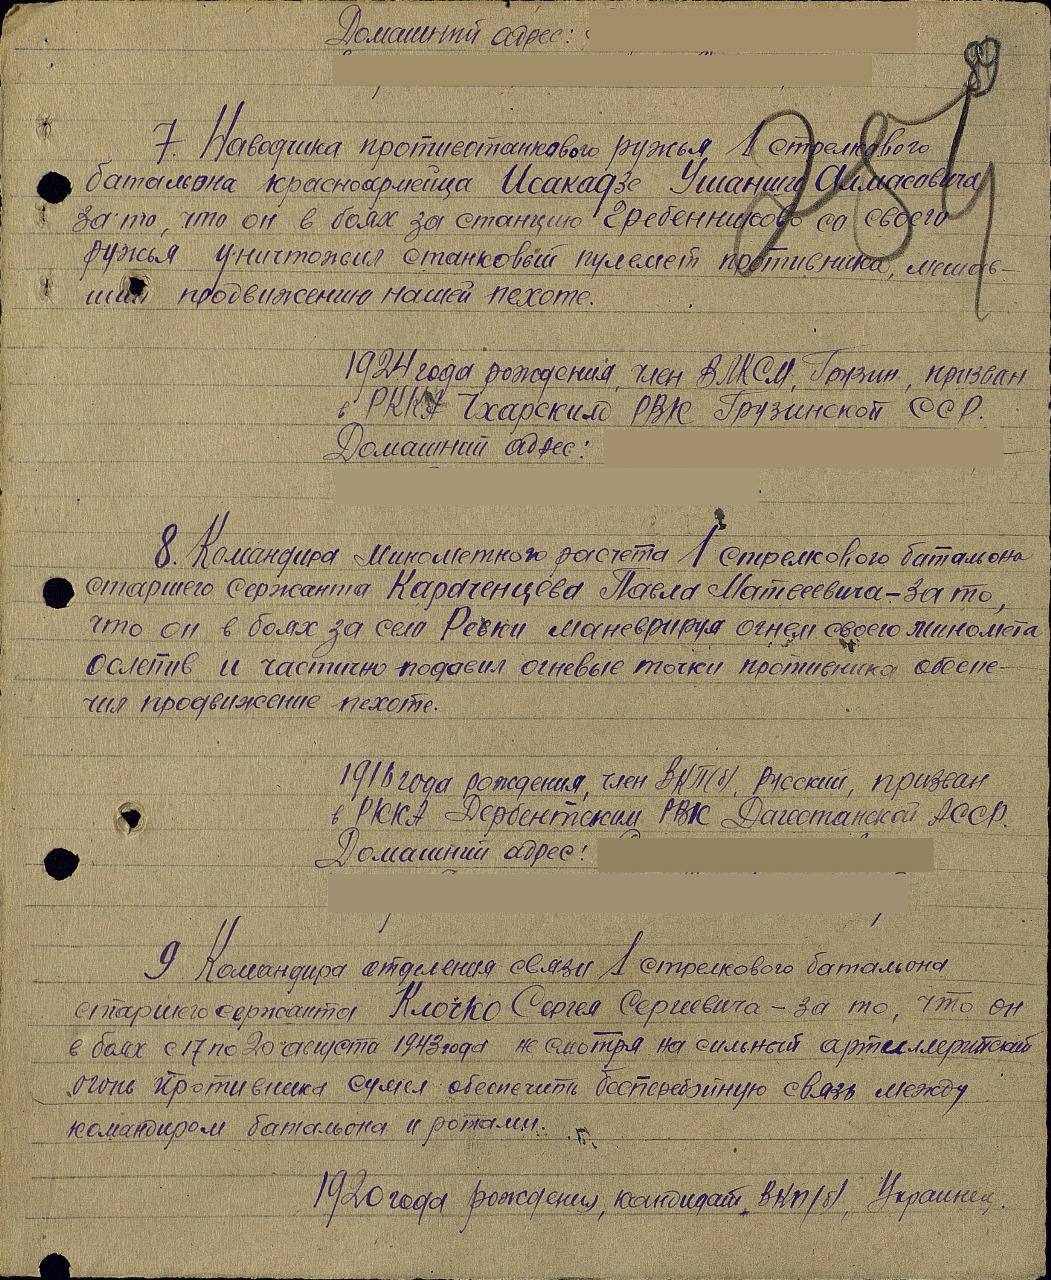 Домашний адрес:
89
284
7. Наводчика противотанкового ружья 1 стрелкового
батальона красноармейца Исакадзе Ушанги Алмасовича
за то, что он в боях за станцию Гребенниково со своего
ружья уничтожил станковый пулемет противника, мешав-
ший продвижению нашей пехоте.
1924 года рождения, член ВЛКСМ, Грузин, призван
в РККА Чхарским РВК Грузинской ССР.
Домашний адрес:
8. Командира минометного расчета 1 стрелкового батальона
старшего сержанта Караченцева Павла Матвеевича - за то,
что он в боях за село Ревки маневрируя огнем своего миномета
ослепив и частично подавил огневые точки противника обеспе-
чил продвижение пехоте.
года рождения, член ВКП(б), Русский, призван
в РККА Дербентским РВК Дагестанской АССР.
Домашний адрес:
9 Командира отделения связи 1 стрелкового батальона
старшего сержанта Клочко Сергея Сергеевича - за то, что он
в боях с 17 по 20 августа 1943 года не смотря на сильный артиллерийский
огонь противника сумел обеспечить бесперебойную связь между
командиром батальона и ротами.
1920 года рождения, кандидат ВКП(б), Украинец.